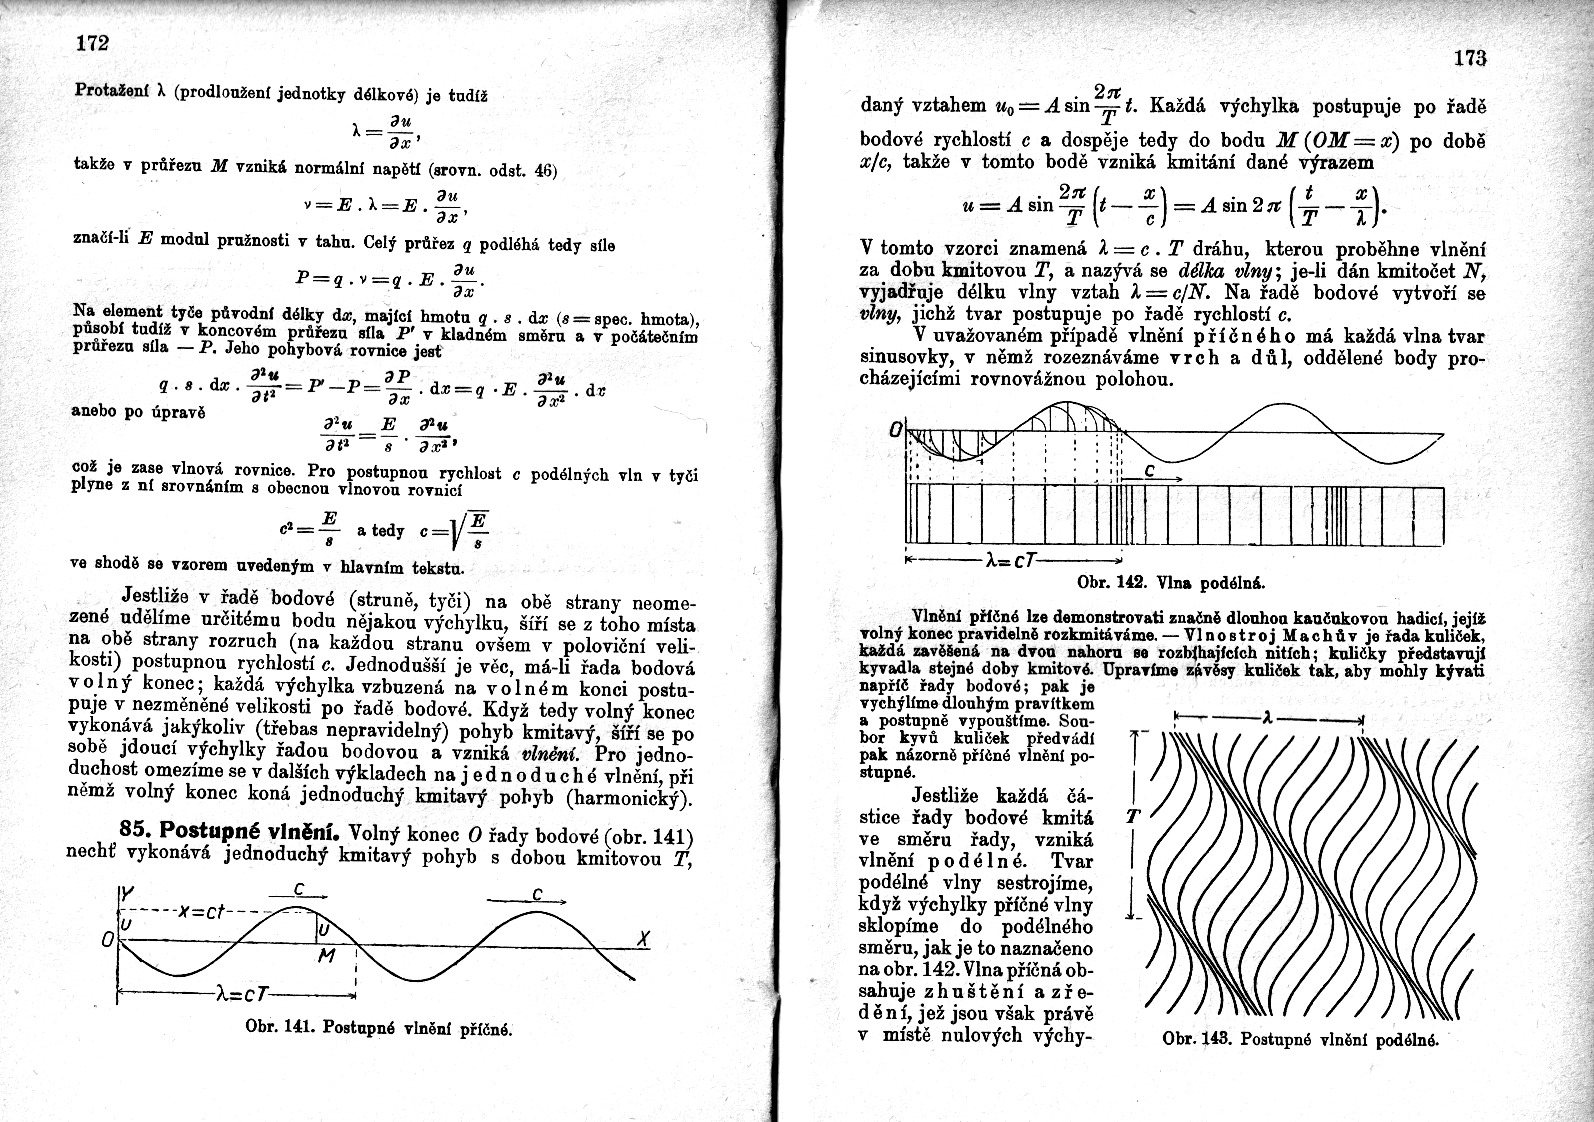 172
Protažení λ (prodloužení jednotky délkové) je tudíž
λ = ∂u/∂x,
takže v průřezu M vzniká normální napětí (srovn. odst. 46)
ν = E . λ = E . ∂u/∂x,
značí-li E modul pružnosti v tahu. Celý průřez q podléhá tedy síle
P = q . ν = q . E . ∂u/∂x.
Na element tyče původní délky dx, mající hmotu q . s . dx (s = spec. hmota),
působí tudíž v koncovém průřezu síla P' v kladném směru a v počátečním
průřezu síla — P. Jeho pohybová rovnice jest
q . s . dx . ∂²u/∂t² = P' — P = ∂P/∂x . dx = q . E . ∂²u/∂x² . dx
anebo po úpravě
∂²u/∂t² = E/s . ∂²u/∂x²,
což je zase vlnová rovnice. Pro postupnou rychlost c podélných vln v tyči
plyne z ní srovnáním s obecnou vlnovou rovnicí
c² = E/s a tedy c = √E/s
ve shodě se vzorem uvedeným v hlavním tekstu.
Jestliže v řadě bodové (struně, tyči) na obě strany neome-
zené udělíme určitému bodu nějakou výchylku, šíří se z toho místa
na obě strany rozruch (na každou stranu ovšem v poloviční veli-
kosti) postupnou rychlostí c. Jednodušší je věc, má-li řada bodová
volný konec; každá výchylka vzbuzená na volném konci postu-
puje v nezměněné velikosti po řadě bodové. Když tedy volný konec
vykonává jakýkoliv (třebas nepravidelný) pohyb kmitavý, šíří se po
sobě jdoucí výchylky řadou bodovou a vzniká vlnění. Pro jedno-
duchost omezíme se v dalších výkladech na jednoduché vlnění, při
němž volný konec koná jednoduchý kmitavý pohyb (harmonický).
85. Postupné vlnění. Volný konec O řady bodové (obr. 141)
nechť vykonává jednoduchý kmitavý pohyb s dobou kmitovou T,
Y
C
C
x=ct
U
U
O
M
X
λ=cT
Obr. 141. Postupné vlnění příčné.
173
daný vztahem u₀ = A sin 2π/T t. Každá výchylka postupuje po řadě
bodové rychlostí c a dospěje tedy do bodu M (OM = x) po době
x/c, takže v tomto bodě vzniká kmitání dané výrazem
u = A sin 2π/T (t — x/c) = A sin 2π (t/T — x/λ).
V tomto vzorci znamená λ = c . T dráhu, kterou proběhne vlnění
za dobu kmitovou T, a nazývá se délka vlny; je-li dán kmitočet N,
vyjadřuje délku vlny vztah λ = c/N. Na řadě bodové vytvoří se
vlny, jichž tvar postupuje po řadě rychlostí c.
V uvažovaném případě vlnění příčného má každá vlna tvar
sinusovky, v němž rozeznáváme vrch a důl, oddělené body pro-
cházejícími rovnovážnou polohou.
O
C
λ=cT
Obr. 142. Vlna podélná.
Vlnění příčné lze demonstrovati značně dlouhou kaučukovou hadicí, jejíž
volný konec pravidelně rozkmitáváme. — Vlnostroj Machův je řada kuliček,
každá zavěšená na dvou nahoru se rozbíhajících nitích; kuličky představují
kyvadla stejné doby kmitové. Upravíme závěsy kuliček tak, aby mohly kývati
napříč řady bodové; pak je
vychýlíme dlouhým pravítkem
a postupně vypouštíme. Sou-
bor kyvů kuliček předvádí
pak názorně příčné vlnění po-
stupné.
Jestliže každá čá-
stice řady bodové kmitá
ve směru řady, vzniká
vlnění podélné. Tvar
podélné vlny sestrojíme,
když výchylky příčné vlny
sklopíme do podélného
směru, jak je to naznačeno
na obr. 142. Vlna příčná ob-
sahuje zhuštění a zře-
dění, jež jsou však právě
v místě nulových výchy-
λ
T
Obr. 143. Postupné vlnění podélné.